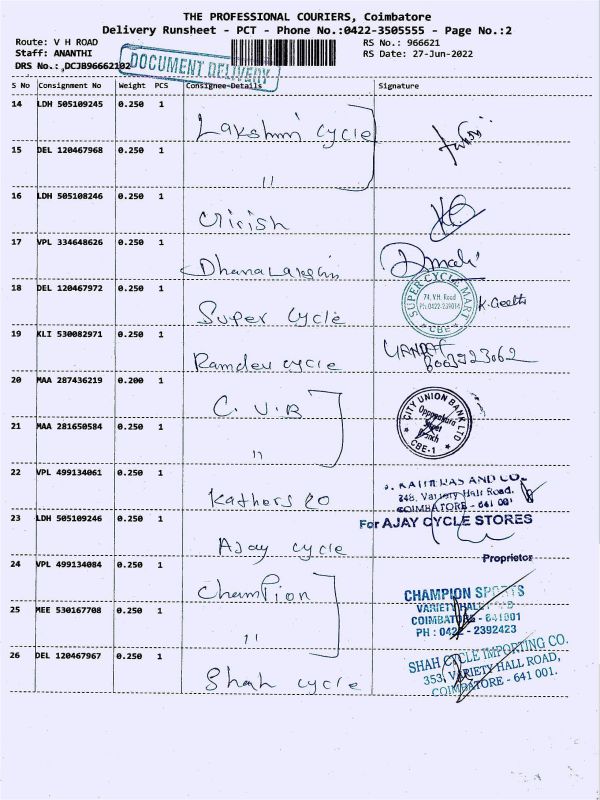 THE PROFESSIONAL COURIERS, Coimbatore
Delivery Runsheet - PCT - Phone No.:0422-3505555 - Page No.:2
Route: V H ROAD
RS No.: 966621
Staff: ANANTHI
RS Date: 27-Jun-2022
DRS No.:,DCJB96662102
DOCUMENT DELIVERY
S No Consignment No Weight PCS Consignee Details Signature
14 LDH 505109245 0.250 1
Lakshmi cycle
15 DEL 120467968 0.250 1
"
16 LDH 505108246 0.250 1
Girish
17 VPL 334648626 0.250 1
Dhanalakshmi
18 DEL 120467972 0.250 1
Super cycle
SUPER CYCLE MART
74, V.H. Road
Ph:0422-239014
CBE
K. Geetha
19 KLI 530082971 0.250 1
Ramdev cycle
20 MAA 287436219 0.200 1
C. U. B
21 MAA 281650584 0.250 1
"
CITY UNION BANK LTD
Oppanakara
Street
Branch
CBE-1
22 VPL 499134061 0.250 1
Kathers co
AND CO.
248, Variety Hall Road.
COIMBATORE - 641 001
23 LDH 505109246 0.250 1
Ajay cycle
For AJAY CYCLE STORES
Proprietor
24 VPL 499134084 0.250 1
Champion
25 MEE 530167708 0.250 1
"
CHAMPION SPORTS
VARIETY HALL
COIMBATORE - 641001
PH : 0422 - 2392423
26 DEL 120467967 0.250 1
Shah cycle
SHAH CYCLE IMPORTING CO.
353, VARIETY HALL ROAD,
COIMBATORE - 641 001.